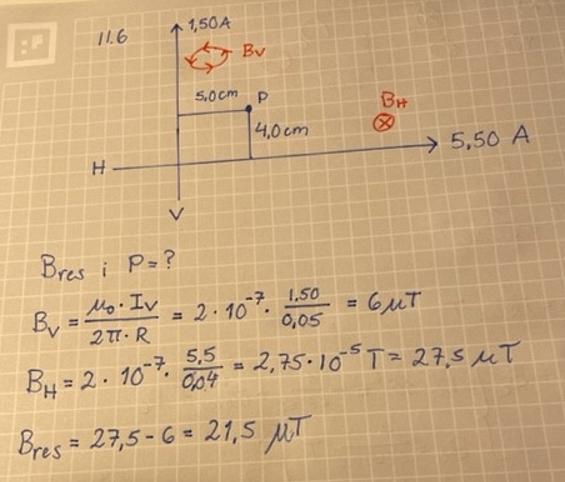 11.6
1,50A
Bv
5,0cm
P
4,0cm
BH
5,50 A
H
V
Bres i P=?
Bv = μ₀·Iv / 2π·R = 2·10⁻⁷· 1.50 / 0,05 = 6μT
BH = 2·10⁻⁷· 5,5 / 0,04 = 2,75·10⁻⁵T = 27,5 μT
Bres = 27,5-6 = 21,5 μT